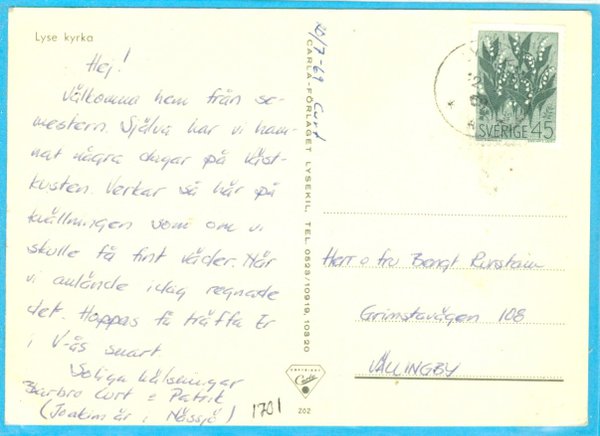 Lyse kyrka
Hej!
Välkomna hem från se-
mestern. Själva har vi ham-
nat några dagar på Väst-
kusten. Verkar så här på
kvällningen som om vi
skulle få fint väder. När
vi anlände idag regnade
det. Hoppas få träffa Er
i V-ås snart
Soliga hälsningar
Barbro Curt o Patrik
(Joakim är i Nässjö)
1701
/7-69 Curt
CARLA-FÖRLAGET LYSEKIL. TEL 0523/10919, 10320
Carla
202
SVERIGE 45
Herr o fru Bengt
Grimstavägen 108
VÄLLINGBY